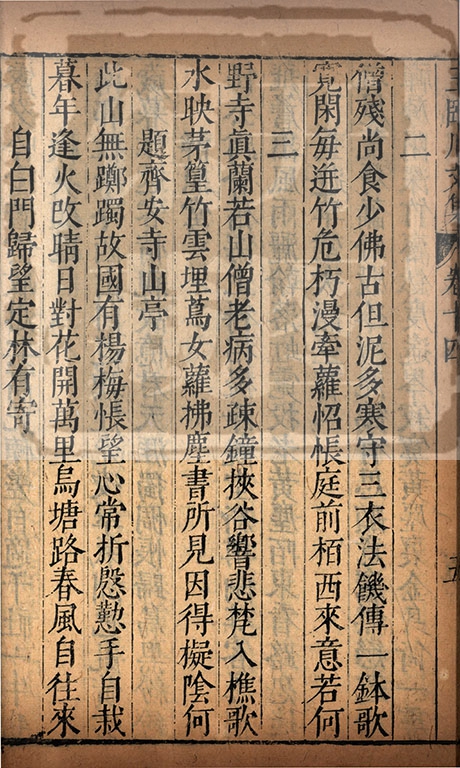 王臨川文集 卷十四 五
二
僧殘尚食少佛古但泥多寒守三衣法饑傳一鉢歌
寬閑每迸竹危朽漫牽蘿怊悵庭前栢西來意若何
三
野寺眞蘭若山僧老病多疎鐘挾谷響悲梵入樵歌
水映茅篁竹雲埋蔦女蘿拂塵書所見因得擬陰何
題齊安寺山亭
此山無躑躅故國有楊梅悵望心常折慇懃手自栽
暮年逢火改晴日對花開萬里烏塘路春風自往來
自白門歸望定林有寄